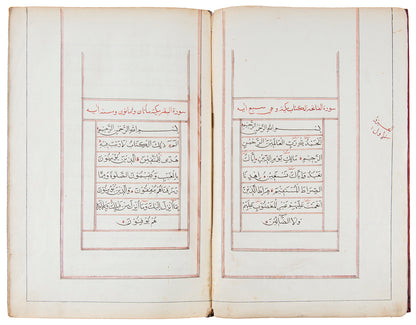 سورة الفاتحة الكتاب مكية وهي سبع آية
بسم الله الرحمن الرحيم
الحمد لله رب العالمين الرحمن
الرحيم مالك يوم الدين اياك
نعبد واياك نستعين اهدنا
الصراط المستقيم صراط الذين
انعمت عليهم غير المغضوب عليهم
ولا الضالين
سورة البقرة مائتان وثمانون وست آية
بسم الله الرحمن الرحيم
الم ذلك الكتاب لا ريب فيه
هدى للمتقين الذين يؤمنون
بالغيب ويقيمون الصلوة ومما
رزقناهم ينفقون والذين يؤمنون
بما انزل اليك وما انزل من قبلك وبالاخرة
هم يوقنون